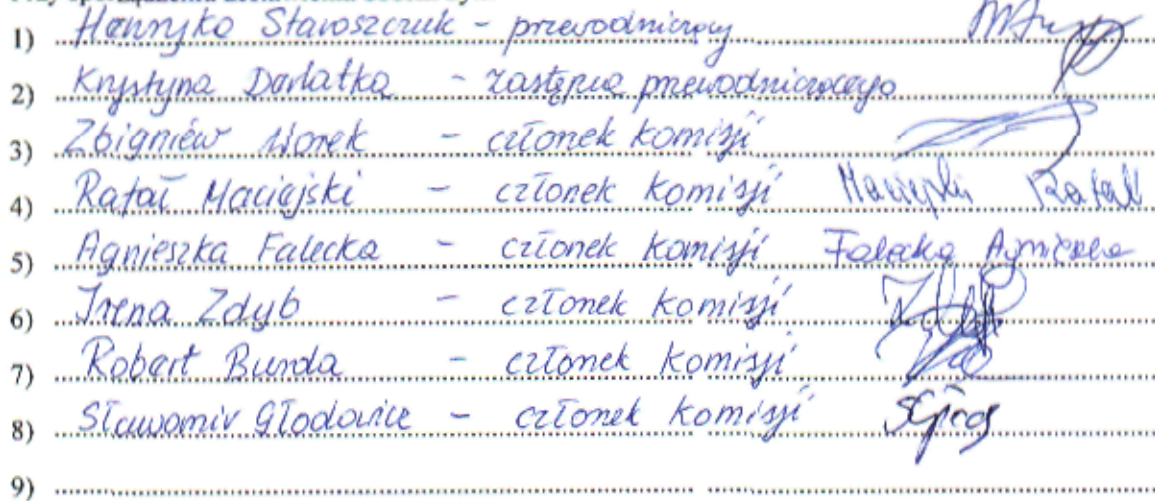 1) Henryka Staroszczuk - przewodniczący
2) Krystyna Darłatka - zastępca przewodniczącego
3) Zbigniew - członek komisji
4) Rafał Maciejski - członek komisji Maciejski Rafał
5) Agnieszka Falecka - członek komisji Falecka Agnieszka
6) Irena Zdyb - członek komisji
7) Robert Burda - członek komisji
8) Sławomir Głodowice - członek komisji
9)